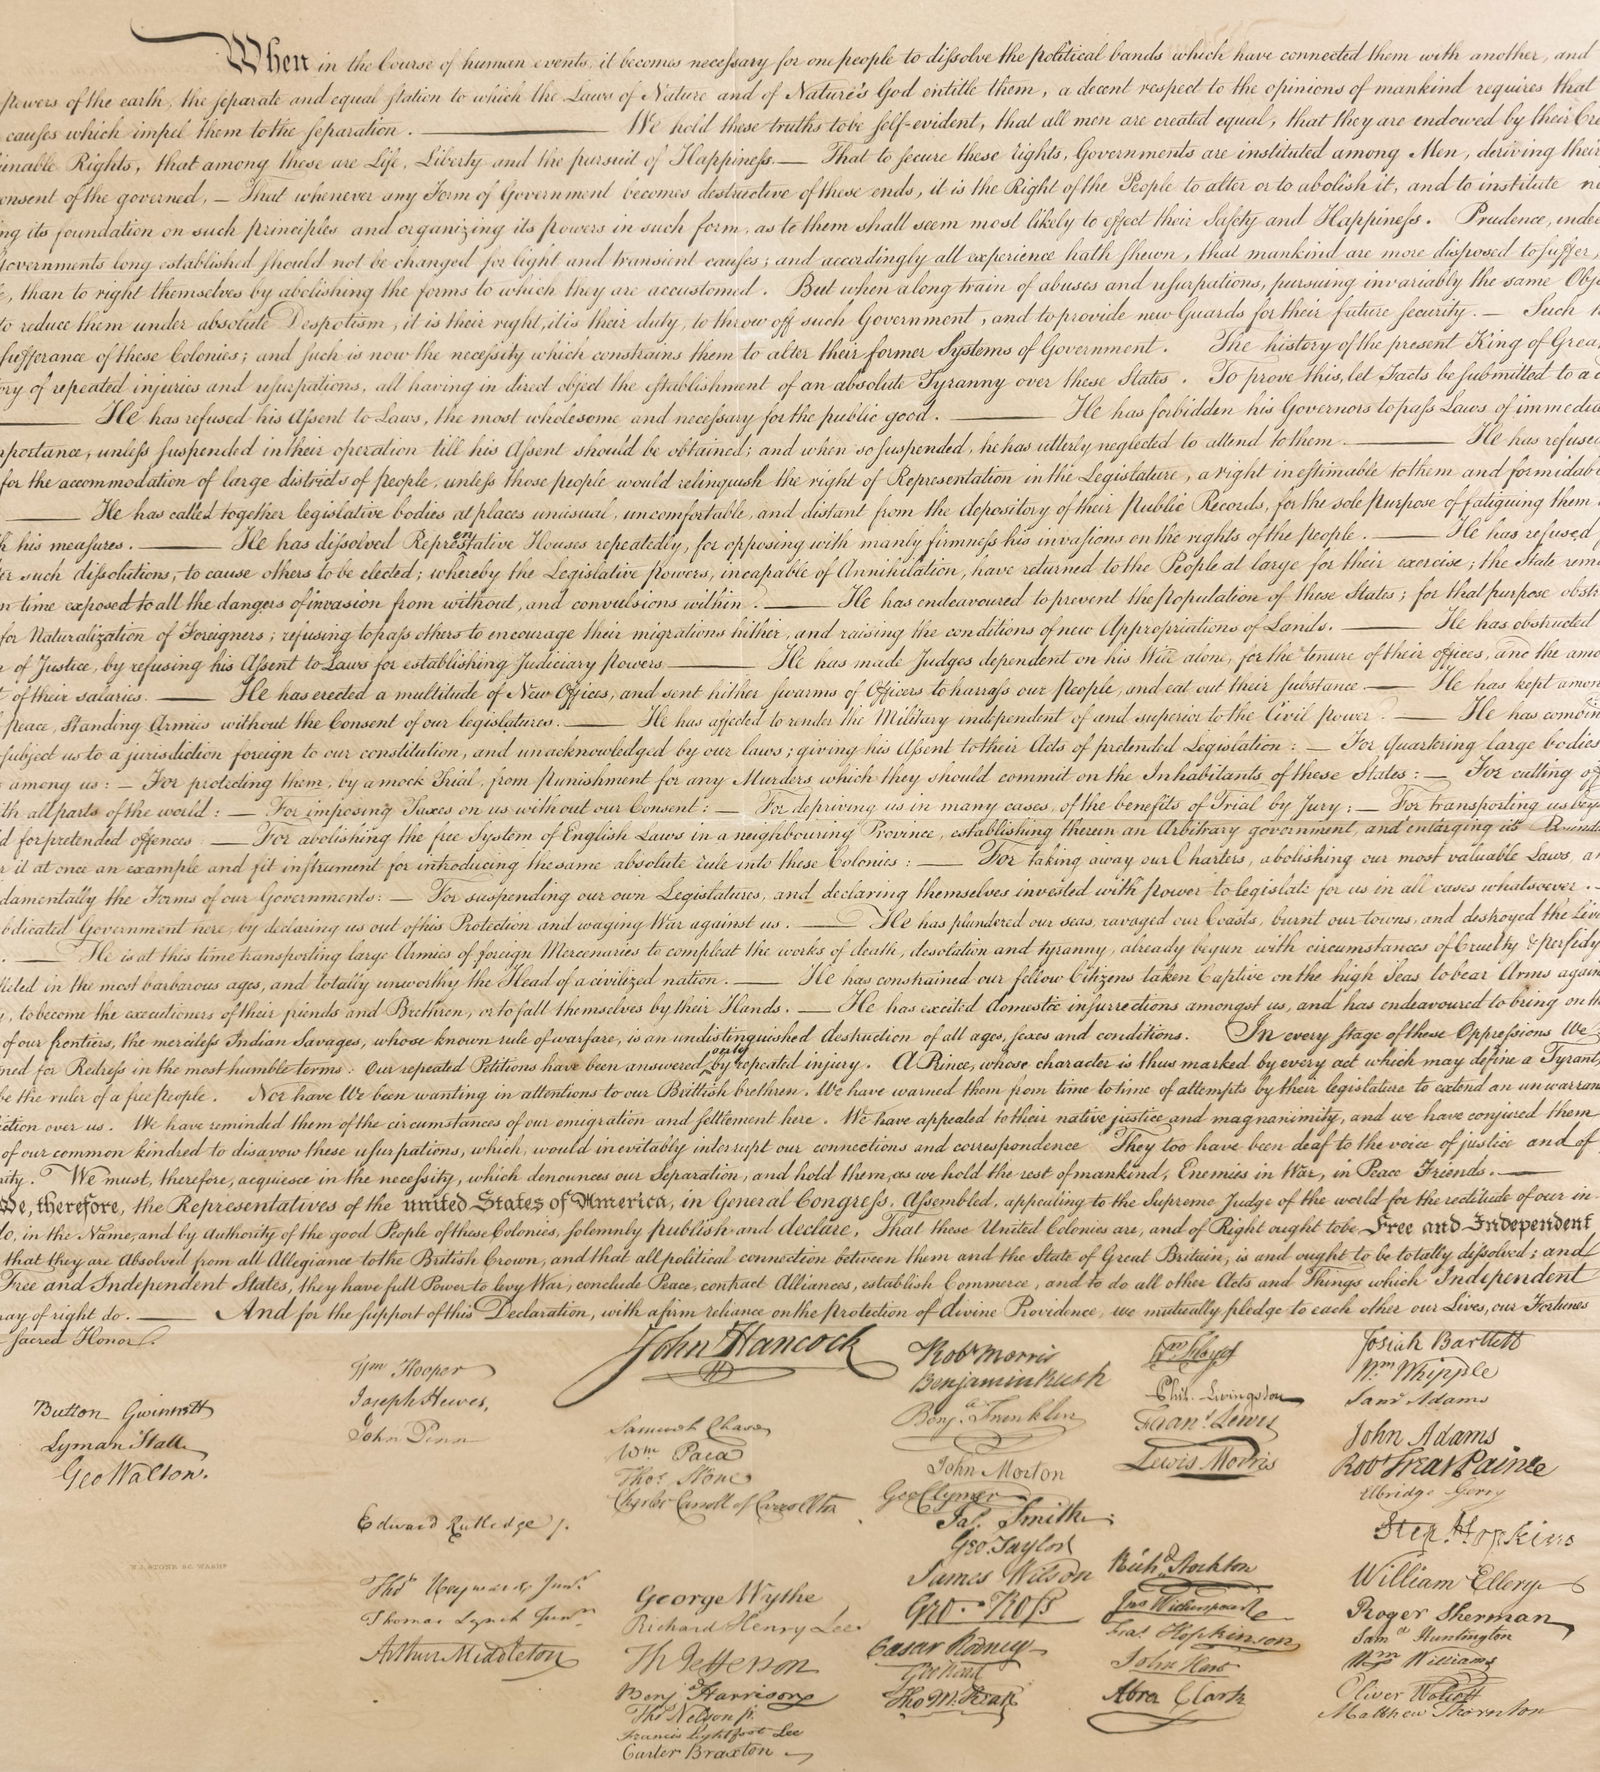 When in the Course of human events, it becomes necessary for one people to dissolve the political bands which have connected them with another, and
powers of the earth, the separate and equal station to which the Laws of Nature and of Nature's God entitle them, a decent respect to the opinions of mankind requires that
causes which impel them to the separation. —— We hold these truths to be self-evident, that all men are created equal, that they are endowed by their Cre
inable Rights, that among these are Life, Liberty and the pursuit of Happiness.— That to secure these rights, Governments are instituted among Men, deriving their
onsent of the governed, — That whenever any Form of Government becomes destructive of these ends, it is the Right of the People to alter or to abolish it, and to institute n
ng its foundation on such principles and organizing its powers in such form, as to them shall seem most likely to effect their Safety and Happiness. Prudence, indee
Governments long established should not be changed for light and transient causes; and accordingly all experience hath shewn, that mankind are more disposed to suffer,
e, than to right themselves by abolishing the forms to which they are accustomed. But when a long train of abuses and usurpations, pursuing invariably the same Obje
to reduce them under absolute Despotism, it is their right, it is their duty, to throw off such Government, and to provide new Guards for their future security. — Such h
sufferance of these Colonies; and such is now the necessity which constrains them to alter their former Systems of Government. The history of the present King of Grea
ory of repeated injuries and usurpations, all having in direct object the establishment of an absolute Tyranny over these States. To prove this, let Facts be submitted to a c
—— He has refused his Assent to Laws, the most wholesome and necessary for the public good. —— He has forbidden his Governors to pass Laws of immedia
mportance, unless suspended in their operation till his Assent should be obtained; and when so suspended, he has utterly neglected to attend to them. —— He has refused
for the accommodation of large districts of people, unless those people would relinquish the right of Representation in the Legislature, a right inestimable to them and formidab
—— He has called together legislative bodies at places unusual, uncomfortable, and distant from the depository of their Public Records, for the sole purpose of fatiguing them
h his measures. —— He has dissolved Representative Houses repeatedly, for opposing with manly firmness his invasions on the rights of the people. —— He has refused f
er such dissolutions, to cause others to be elected; whereby the Legislative powers, incapable of Annihilation, have returned to the People at large for their exercise; the State rem
n time exposed to all the dangers of invasion from without, and convulsions within. —— He has endeavoured to prevent the population of these States; for that purpose obstr
for Naturalization of Foreigners; refusing to pass others to encourage their migrations hither, and raising the conditions of new Appropriations of Lands. —— He has obstructed
n of Justice, by refusing his Assent to Laws for establishing Judiciary powers —— He has made Judges dependent on his Will alone, for the tenure of their offices, and the amo
t of their salaries. —— He has erected a multitude of New Offices, and sent hither swarms of Officers to harrass our people, and eat out their substance —— He has kept amon
f peace, Standing Armies without the Consent of our legislatures. —— He has affected to render the Military independent of and superior to the Civil power. —— He has combin
subject us to a jurisdiction foreign to our constitution, and unacknowledged by our laws; giving his Assent to their Acts of pretended Legislation: — For quartering large bodies
s among us: — For protecting them, by a mock Trial, from punishment for any Murders which they should commit on the Inhabitants of these States: — For cutting of
ith all parts of the world: — For imposing Taxes on us without our Consent: — For depriving us in many cases, of the benefits of Trial by Jury: — For transporting us bey
d for pretended offences — For abolishing the free System of English Laws in a neighbouring Province, establishing therein an Arbitrary government, and enlarging its Bounda
r it at once an example and fit instrument for introducing the same absolute rule into these Colonies: — For taking away our Charters, abolishing our most valuable Laws, an
damentally the Forms of our Governments: — For suspending our own Legislatures, and declaring themselves invested with power to legislate for us in all cases whatsoever. —
bdicated Government here, by declaring us out of his Protection and waging War against us. —— He has plundered our seas, ravaged our Coasts, burnt our towns, and destroyed the live
. —— He is at this time transporting large Armies of foreign Mercenaries to compleat the works of death, desolation and tyranny, already begun with circumstances of Cruelty & perfidy
lleled in the most barbarous ages, and totally unworthy the Head of a civilized nation. —— He has constrained our fellow Citizens taken Captive on the high Seas to bear Arms again
y, to become the executioners of their friends and Brethren, or to fall themselves by their Hands. —— He has excited domestic insurrections amongst us, and has endeavoured to bring on th
of our frontiers, the merciless Indian Savages, whose known rule of warfare, is an undistinguished destruction of all ages, sexes and conditions. In every stage of these Oppressions We
ned for Redress in the most humble terms: Our repeated Petitions have been answered only by repeated injury. A Prince, whose character is thus marked by every act which may define a Tyrant,
be the ruler of a free people. Nor have We been wanting in attentions to our Brittish brethren. We have warned them from time to time of attempts by their legislature to extend an unwarran
iction over us. We have reminded them of the circumstances of our emigration and settlement here. We have appealed to their native justice and magnanimity, and we have conjured them
of our common kindred to disavow these usurpations, which, would inevitably interrupt our connections and correspondence They too have been deaf to the voice of justice and of
nity. We must, therefore, acquiesce in the necessity, which denounces our Separation, and hold them, as we hold the rest of mankind, Enemies in War, in Peace Friends. ——
We, therefore, the Representatives of the united States of America, in General Congress, Assembled, appealing to the Supreme Judge of the world for the rectitude of our in-
do, in the Name, and by Authority of the good People of these Colonies, solemnly publish and declare, That these United Colonies are, and of Right ought to be Free and Independent
that they are Absolved from all Allegiance to the British Crown, and that all political connection between them and the State of Great Britain, is and ought to be totally dissolved; and
Free and Independent States, they have full Power to levy War, conclude Peace, contract Alliances, establish Commerce, and to do all other Acts and Things which Independent
may of right do. —— And for the support of this Declaration, with a firm reliance on the protection of divine Providence, we mutually pledge to each other our Lives, our Fortunes
sacred Honor.
Button Gwinnett
Lyman Hall
Geo Walton.
W.J. STONE SC. WASHN
Wm Hooper
Joseph Hewes,
John Penn
Edward Rutledge /.
Thos Heyward Junr.
Thomas Lynch Junr.
Arthur Middleton
John Hancock
Samuel Chase
Wm. Paca
Thos. Stone
Charles Carroll of Carrollton
George Wythe
Richard Henry Lee
Th Jefferson
Benj Harrison
Thos Nelson jr.
Francis Lightfoot Lee
Carter Braxton
Robt Morris
Benjamin Rush
Benja. Franklin
John Morton
Geo Clymer
Jas. Smith
Geo. Taylor
James Wilson
Geo. Ross
Caesar Rodney
Geo Read
Tho M:Kean
Wm Floyd
Phil. Livingston
Frans. Lewis
Lewis Morris
Richd. Stockton
Jno Witherspoon
Fras. Hopkinson
John Hart
Abra Clark
Josiah Bartlett
Wm. Whipple
Saml Adams
John Adams
Robt Treat Paine
Elbridge Gerry
Step. Hopkins
William Ellery
Roger Sherman
Saml Huntington
Wm Williams
Oliver Wolcott
Matthew Thornton